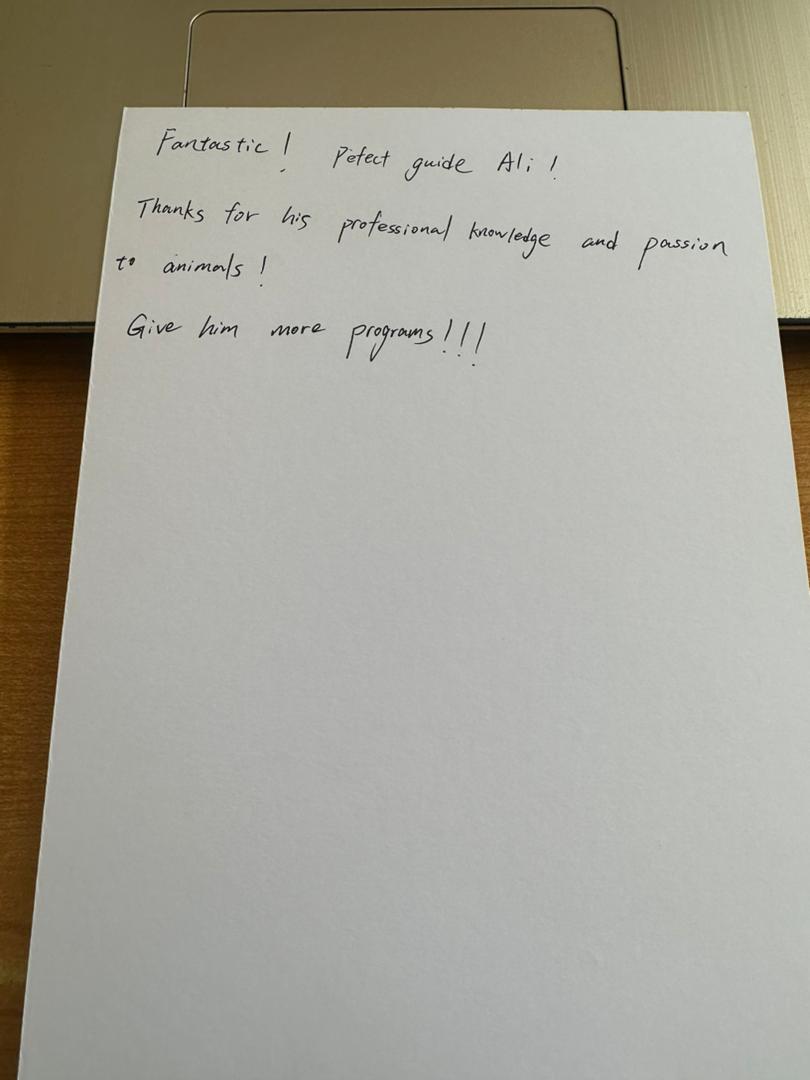 Fantastic! Pefect guide Ali!
Thanks for his professional knowledge and passion
to animals!
Give him more programs!!!